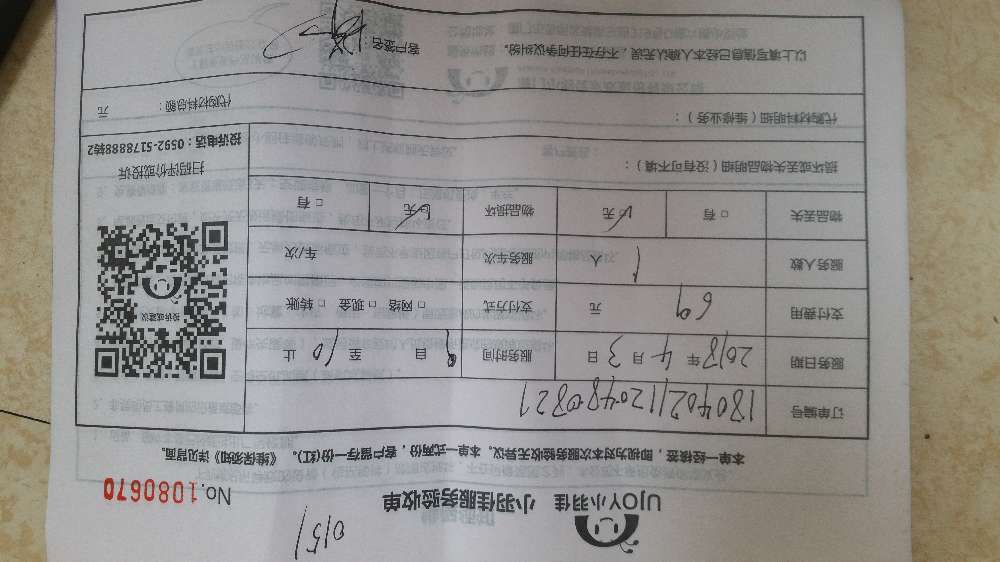 0151
UJOY小羽佳 小羽佳服务验收单
No.1080670
本单一经核签，即视为对本次服务验收无异议。本单一式两份，客户留存一份(红)。《维保须知》详见背面。
订单编号 18040211204800821
服务日期 2018年4月3日 服务时间 9 自 至 10 止
支付费用 69 元 支付方式 □ 网络 □ 现金 □ 转账
服务人数 1 人 服务车次 车/次
物品丢失 □ 有 ☑ 无 物品损坏 ☑ 无 □ 有
投诉或建议
扫码评价或投诉
投诉电话：0592-5178888转2
损坏或丢失物品明细（没有可不填）：
代购材料明细（维修业务）：
代购材料总额： 元
以上填写信息已经本人确认无误，不存在任何争议纠纷。
客户签名：